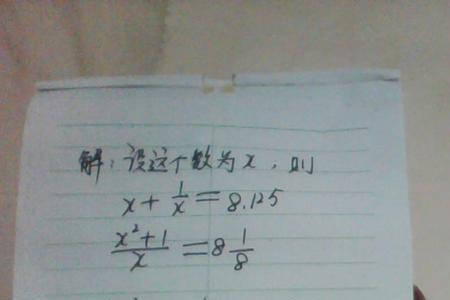 解：设这个数为x，则
x + 1/x = 8.125
(x²+1)/x = 8 1/8